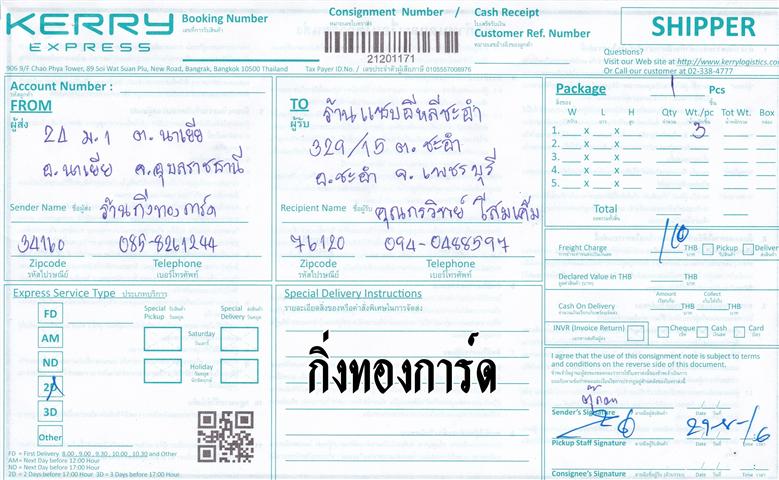 KERRY EXPRESS
Booking Number
เลขที่การรับสินค้า
Consignment Number /
หมายเลขใบตราส่ง
Cash Receipt
ใบเสร็จรับเงิน
Customer Ref. Number
SHIPPER
21201171
Questions?
Visit our Web site at http://www.kerrylogistics.com
Or Call our customer at 02-338-4777
906 9/F Chao Phya Tower, 89 Soi Wat Suan Plu, New Road, Bangrak, Bangkok 10500 Thailand
Tax Payer ID.No. / เลขประจำตัวผู้เสียภาษี 0105557008976
Account Number :
FROM
ผู้ส่ง
24 ม.1 ต.นาเยีย
อ.นาเยีย จ.อุบลราชธานี
Sender Name ชื่อผู้ส่ง ร้านกิ่งทองการ์ด
34160 085-8261244
Zipcode Telephone
รหัสไปรษณีย์ เบอร์โทรศัพท์
TO
ผู้รับ
329/15 ต.ชะอำ
อ.ชะอำ จ.เพชรบุรี
Recipient Name ชื่อผู้รับ
76120 094-0488597
Zipcode Telephone
รหัสไปรษณีย์ เบอร์โทรศัพท์
Package 1 Pcs
W L H Qty Wt./pc Tot Wt. Box
1. x x 3
2. x x
3. x x
4. x x
5. x x
Total
Freight Charge 110 THB Pickup Deliver
Declared Value in THB THB
Amount Collect
Cash On Delivery THB
INVR (Invoice Return) Cheque Cash Card
Express Service Type ประเภทบริการ
Special Pickup
Special Delivery
FD
AM
Saturday
ND
Holiday
2D
3D
Other
FD = First Delivery 8.00 , 9.00 , 9.30 , 10.00 , 10.30 and Other
AM = Next Day before 12:00 Hour
ND = Next Day before 17:00 Hour
2D = 2 Days before 17:00 Hour 3D = 3 Days before 17:00 Hour
Special Delivery Instructions
รายละเอียดสิ่งของหรือคำสั่งพิเศษในการจัดส่ง
กิ่งทองการ์ด
I agree that the use of this consignment note is subject to terms
and conditions on the reverse side of this document.
Sender's Signature Date Time
Pickup Staff Signature Date Time
Consignee's Signature Date Time